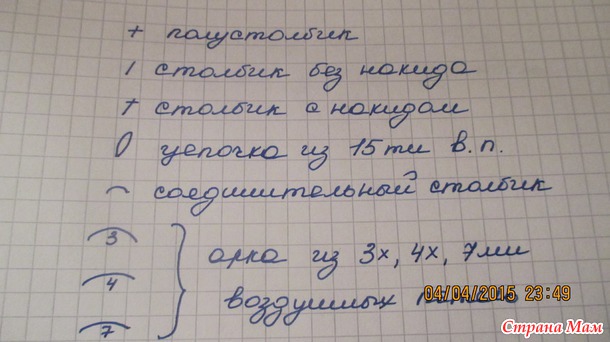 + полустолбик
| столбик без накида
† столбик с накидом
0 цепочка из 15ти в.п.
⌒ соединительный столбик
3
4
7
} арка из 3х, 4х, 7ми
воздушных
04/04/2015 23:49
Страна Мам